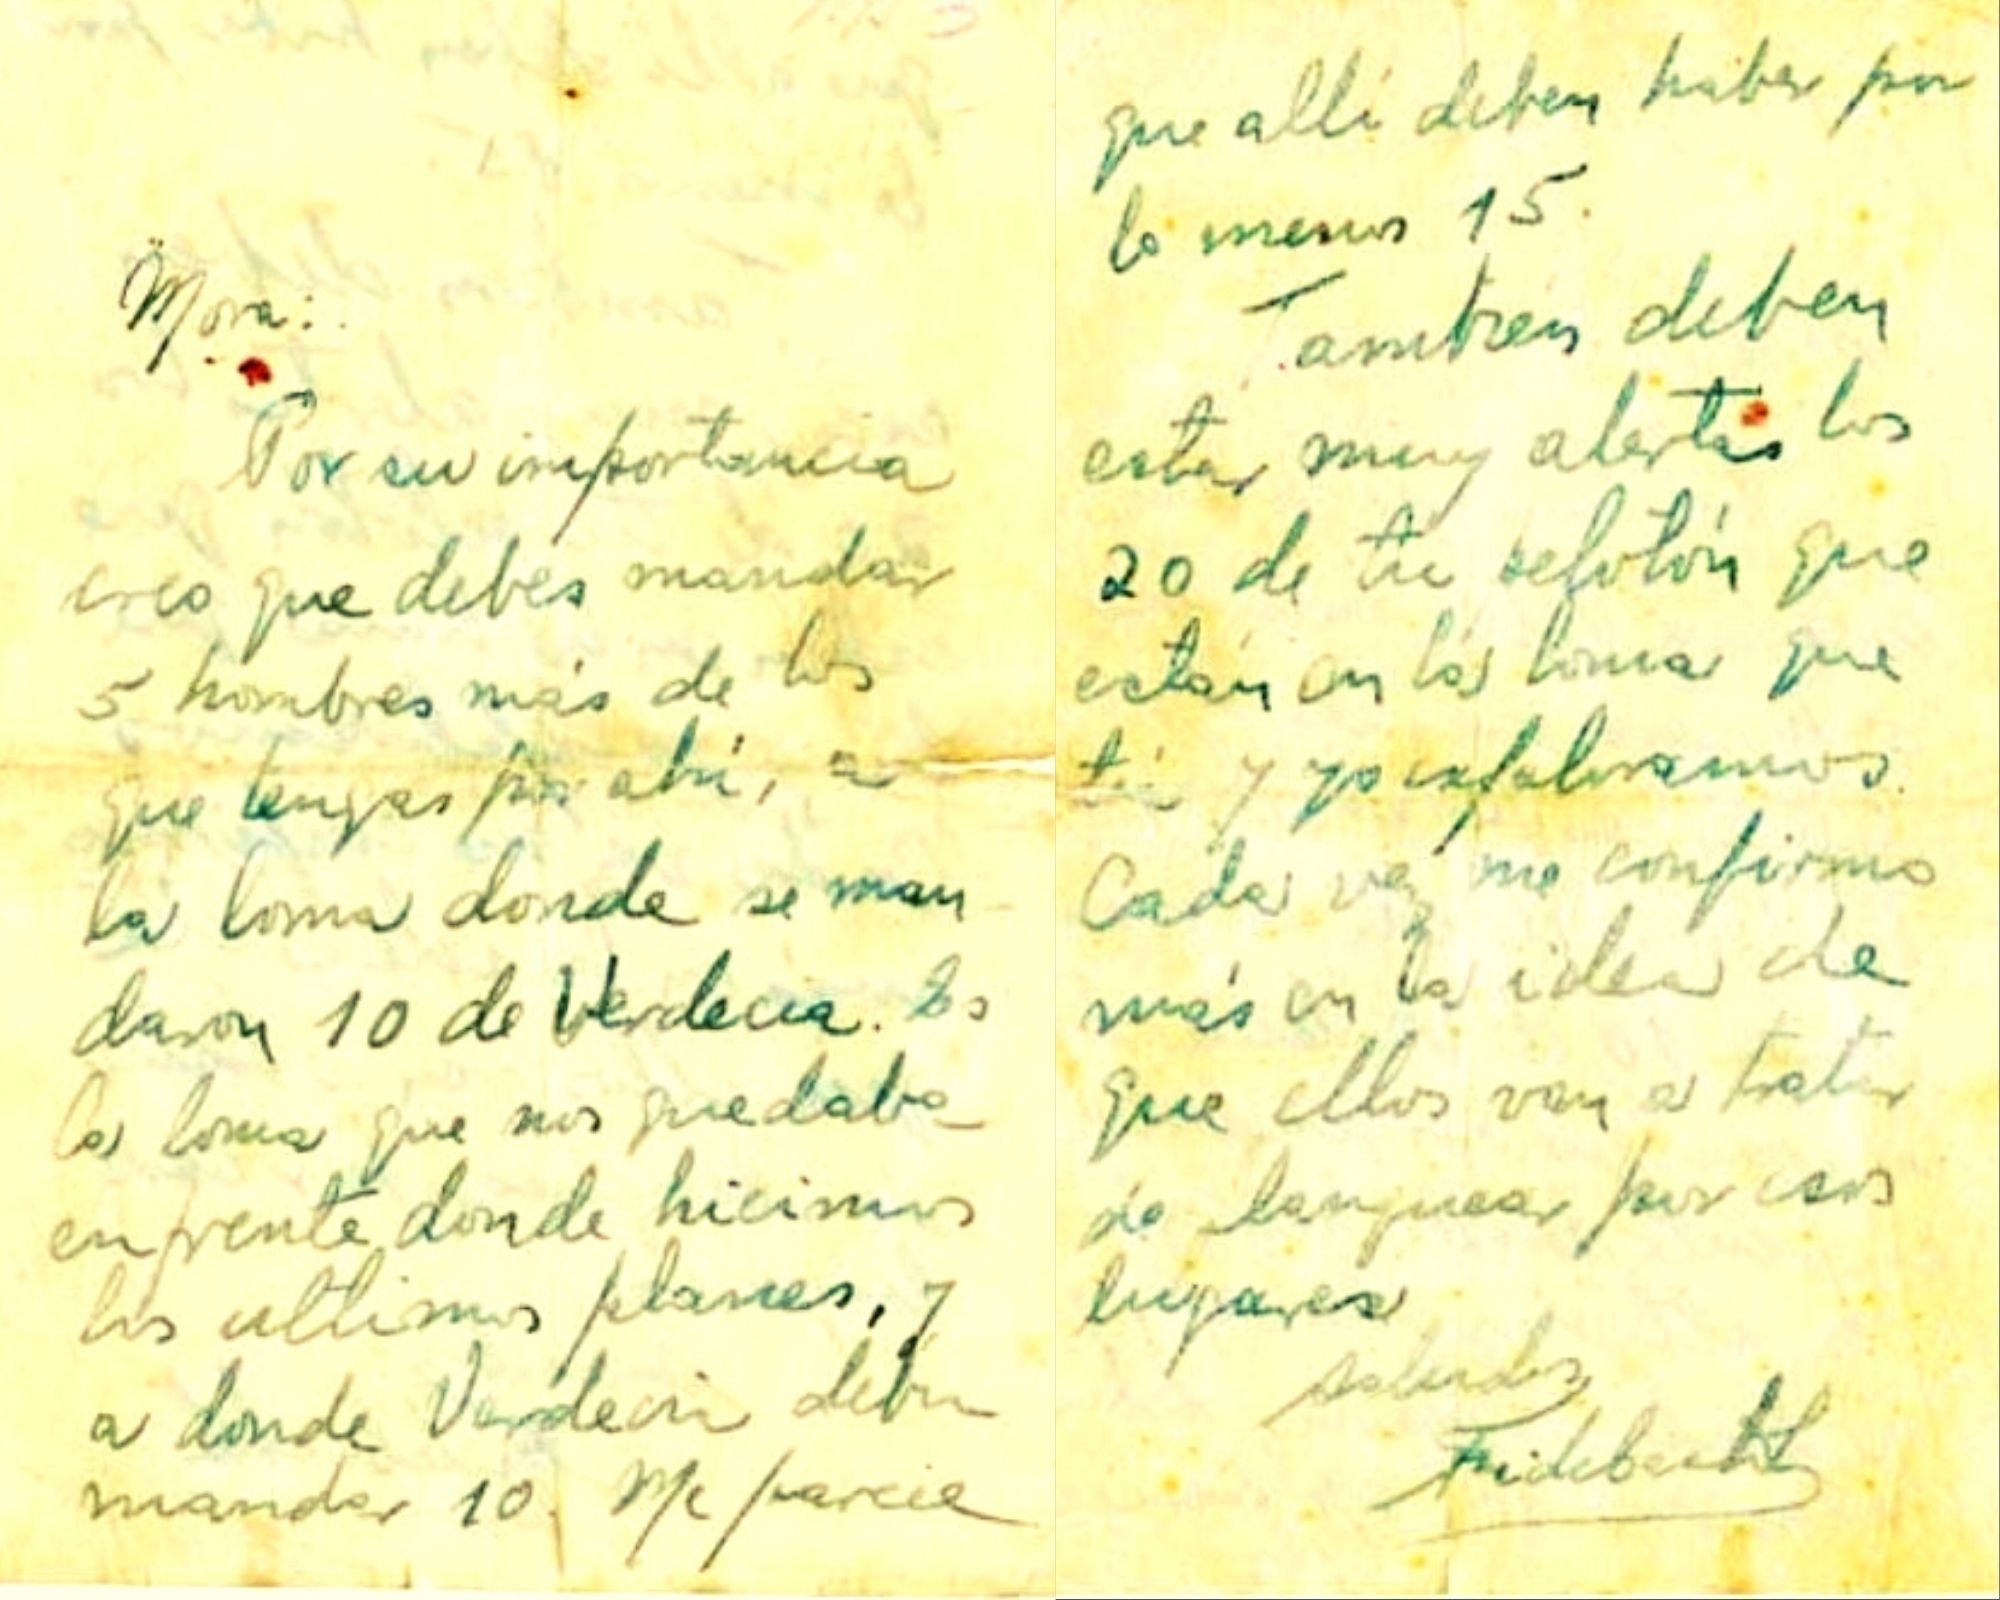 Mora:
Por su importancia
creo que debes mandar
5 hombres más de los
que tengas por ahí, a
la loma donde se man
daron 10 de Verdecia. Es
la loma que nos quedaba
enfrente donde hicimos
los ultimos planes, y
a donde Verdecia debía
mandar 10. Me parece
que allí deben haber por
lo menos 15.
También deben
estar muy alertas los
20 de tu pelotón que
están en la loma que
tú y yo exploramos.
Cada vez me confirmo
más en la idea de
que ellos van a tratar
de flanquear por esos
lugares
saludos
Fidel Castro